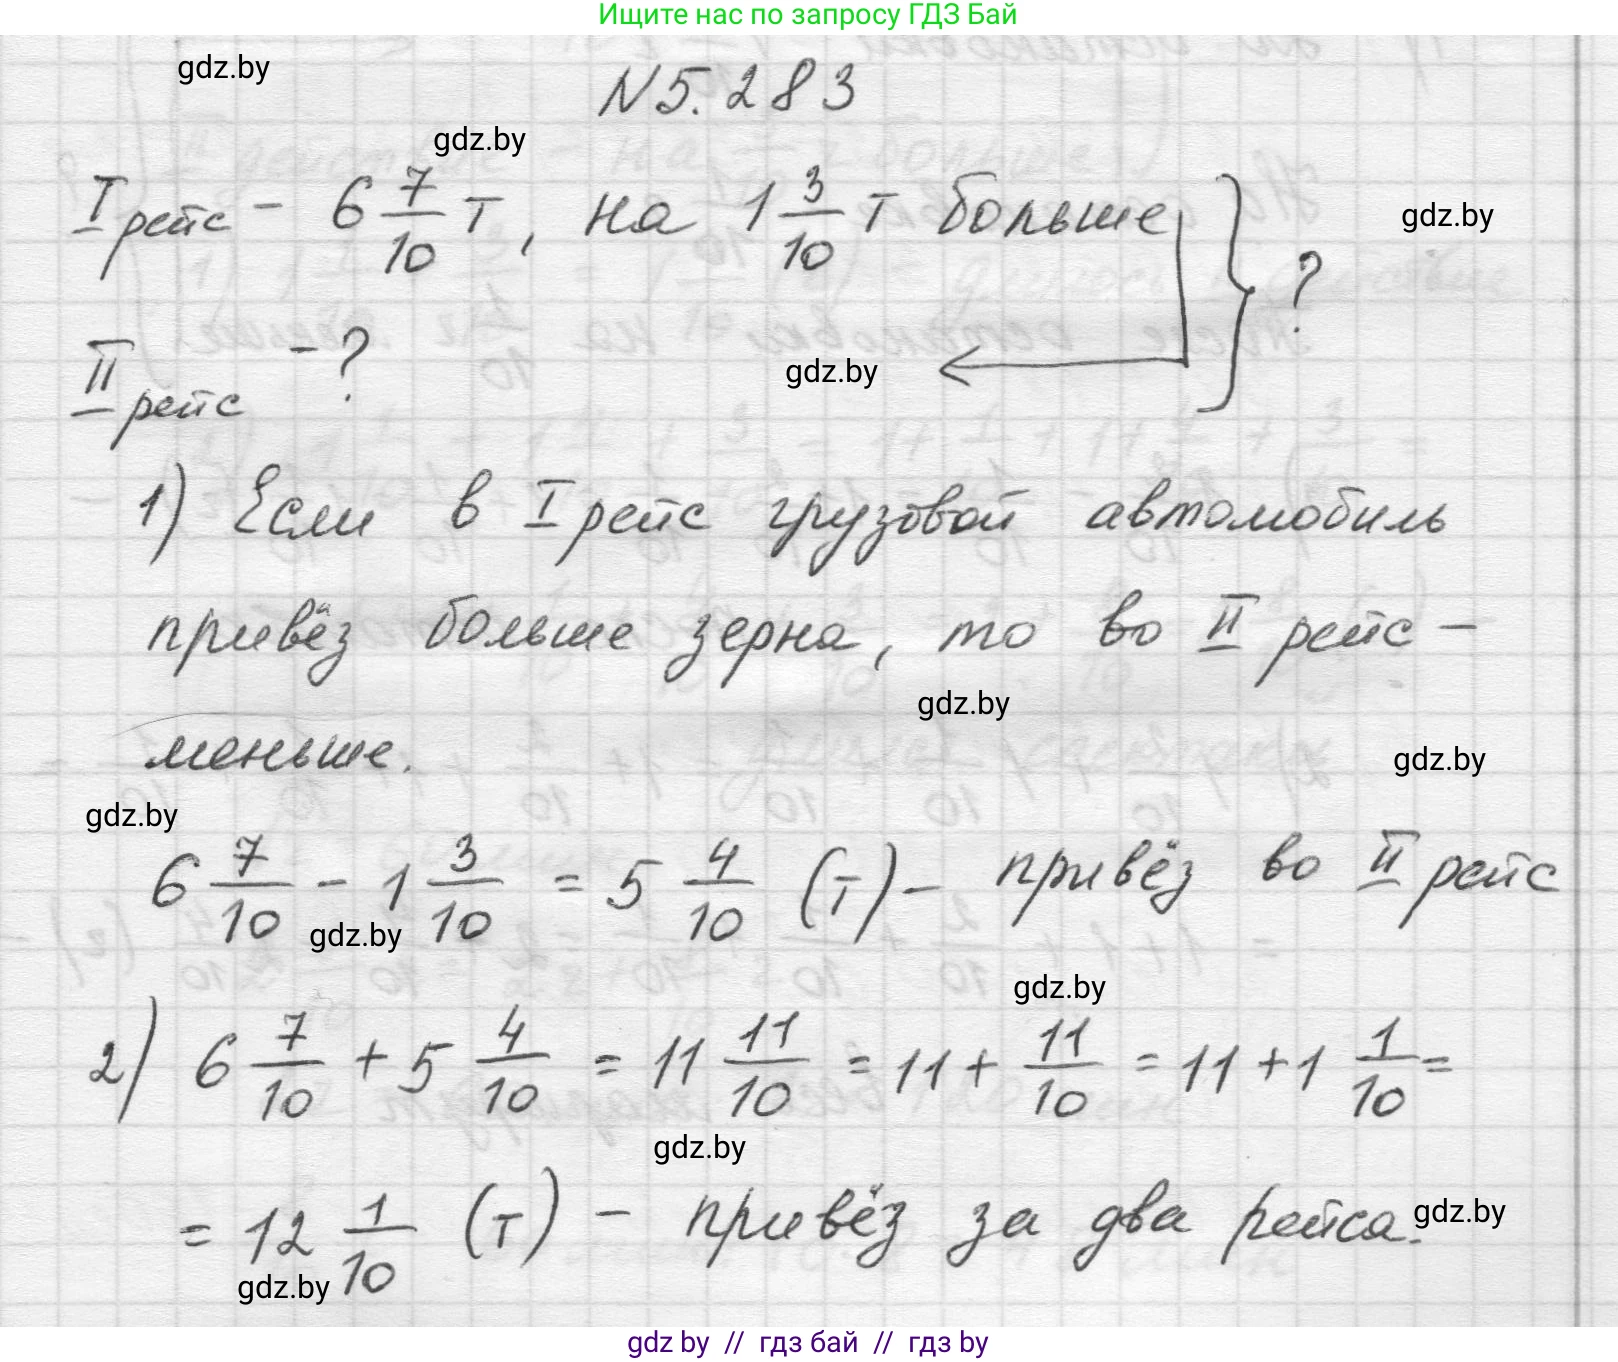 Ищите нас по запросу ГДЗ Бай
gdz.by
N 5.283
gdz.by
I рейс - 6 7/10 т, на 1 3/10 т больше
gdz.by
?
II рейс - ?
gdz.by
1) Если в I рейс грузовой автомобиль
привёз больше зерна, то во II рейс -
gdz.by
меньше.
gdz.by
gdz.by
6 7/10 - 1 3/10 = 5 4/10 (т) - привёз во II рейс
gdz.by
gdz.by
2) 6 7/10 + 5 4/10 = 11 11/10 = 11 + 11/10 = 11 + 1 1/10 =
gdz.by
= 12 1/10 (т) - привёз за два рейса.
gdz.by
gdz.by
gdz by // гдз бай // гдз by